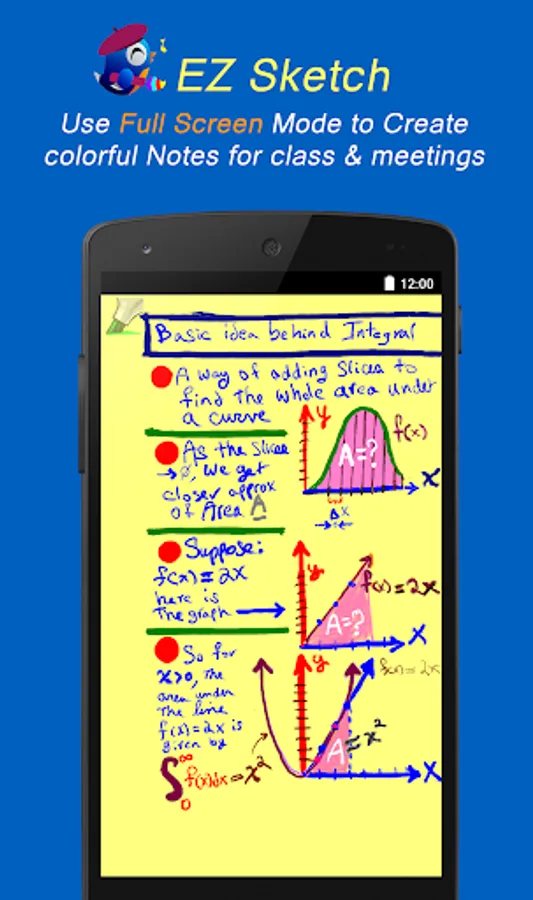 EZ Sketch
Use Full Screen Mode to Create
colorful Notes for class & meetings
12:00
Basic idea behind Integral
A way of adding Slices to
find The whole area under
a curve
y
f(x)
A=?
x
Δx
As the Slices
→ø, we get
closer approx
of Area A
Suppose:
f(x)=2x
here is
The graph
y
f(x)=2x
A=?
X
So for
x>0, The
area under
The line
f(x)=2x is
given by
∫₀^∞ f(x)dx=x²
y
f(x)=2x
A=x²
X